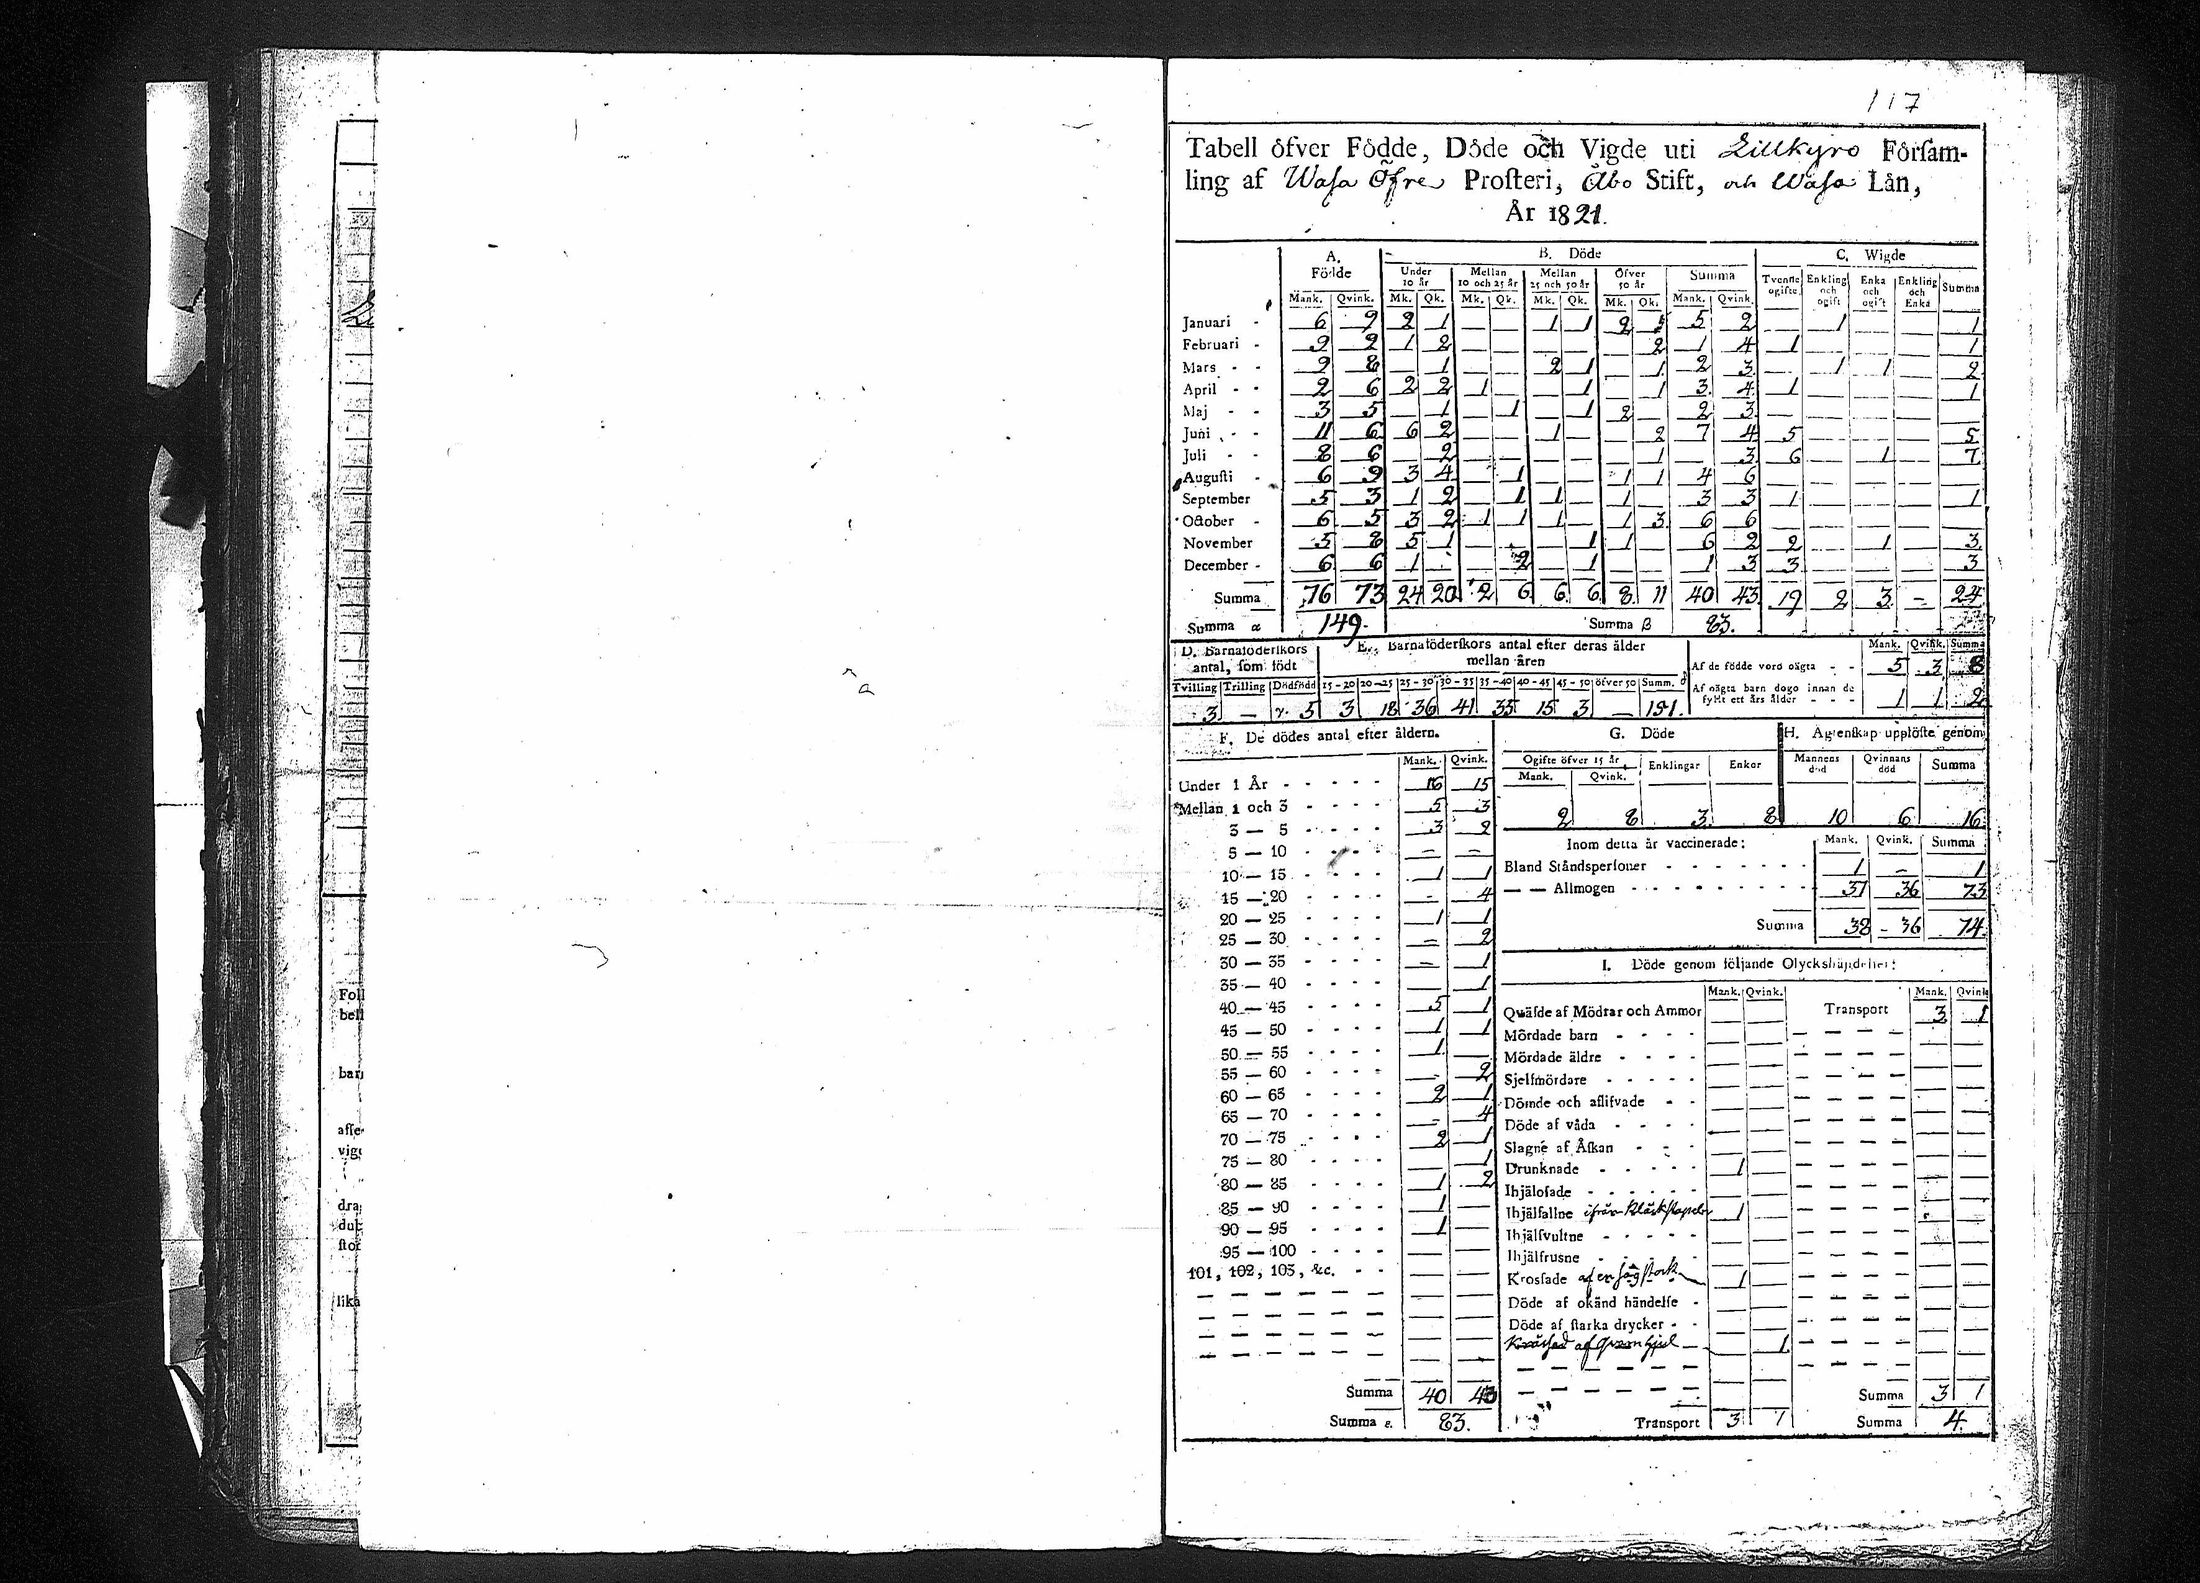 117
Tabell öfver Födde, Döde och Vigde uti Lillkyro Försam-
ling af Wasa Öfre Prosteri, Åbo Stift, och Wasa Län,
År 1821.
A. Födde B. Döde C. Wigde
Under 10 år Mellan 10 och 25 år Mellan 25 och 50 år Öfver 50 år Summa Tvenne ogifte Enkling och ogift Enka och ogift Enkling och Enka Summa
Mank. Qvink. Mk. Qk. Mk. Qk. Mk. Qk. Mk. Qk. Mank. Qvink.
Januari - 6 9 2 1 — — 1 1 2 5 2 — 1 — — 1
Februari - 9 2 1 2 — — — — — 2 1 4 1 — — — 1
Mars - - 9 8 — 1 — — 2 1 — 1 2 3 — 1 1 — 2
April - - 2 6 2 2 1 — — 1 — 1 3 4 1 — — — 1
Maj - - 3 5 — 1 — 1 — 1 2 — 2 3 — — — —
Juni - - 11 6 6 2 — — 1 — — 2 7 4 5 — — — 5
Juli - - 8 6 — 2 — — — — — 1 — 3 6 — 1 — 7
Augusti - 6 9 3 4 — 1 — — 1 1 4 6 — — — —
September 5 3 1 2 — 1 1 — 1 — 3 3 1 — — — 1
October - 6 5 3 2 1 1 1 — 1 3 6 6 — — — —
November 5 8 5 1 — — — 1 1 — 6 2 2 — 1 — 3
December - 6 6 1 — — 2 — 1 — — 1 3 3 — — — 3
Summa 76 73 24 20 2 6 6 6 8 11 40 43 19 2 3 — 24
Summa α 149. Summa β 83.
D. Barnaföderskors antal, som födt
E. Barnaföderskors antal efter deras ålder mellan åren
Mank. Qvink. Summa
Af de födde voro oägta - - 5 3 8
Tvilling Trilling Dödfödd 15-20 20-25 25-30 30-35 35-40 40-45 45-50 öfver 50 Summ. δ
Af oägta barn dogo innan de fyllt ett års ålder - - - 1 1 2
3 — γ. 5 3 18 36 41 35 15 3 — 151.
F. De dödes antal efter åldern.
Mank. Qvink.
Under 1 År - - - - - 16 15
Mellan 1 och 3 - - - - 5 3
3 — 5 - - - - 3 2
5 — 10 - - - - — —
10 — 15 - - - - 1 1
15 — 20 - - - - - 4
20 — 25 - - - - 1 1
25 — 30 - - - - — 2
30 — 35 - - - - — 1
35 — 40 - - - - — 1
40 — 45 - - - - 5 1
45 — 50 - - - - 1 1
50 — 55 - - - - 1 —
55 — 60 - - - - — 2
60 — 65 - - - - 2 1
65 — 70 - - - - — 4
70 — 75 - - - - 2 1
75 — 80 - - - - — 1
80 — 85 - - - - 1 2
85 — 90 - - - - 1 —
90 — 95 - - - - 1 —
95 — 100 - - - - — —
101, 102, 103, &c. - - — —
Summa 40 43
Summa ε. 83.
G. Döde
Ogifte öfver 15 år Enklingar Enkor
Mank. Qvink.
2 8 3 8
H. Ägtenskap upplöste genom
Mannens död Qvinnans död Summa
10 6 16
Inom detta år vaccinerade: Mank. Qvink. Summa
Bland Ståndspersoner - - - - - - - 1 — 1
— — Allmogen - - - - - - - - - 37 36 73
Summa 38 36 74
I. Döde genom följande Olyckshändelser:
Mank. Qvink. Mank. Qvink
Qväfde af Mödrar och Ammor — — Transport 3 1
Mördade barn - - - -
Mördade äldre - - - -
Sjelfmördare - - - - -
Dömde och aflifvade - -
Döde af våda - - - -
Slagne af Åskan - - -
Drunknade - - - - - 1 —
Ihjälofade - - - - - -
Ihjälfallne ifrån Kläckstapeln 1 —
Ihjälfvultne - - - - -
Ihjälfrusne - - - - -
Krossade af en sågstock 1 —
Döde af okänd händelse -
Döde af starka drycker - -
Kråssad af Qvarnhjul — 1
Summa 3 1
Transport 3 1 Summa 4.
Foll
bell
barn
affe
vige
dra
dub
stor
lika